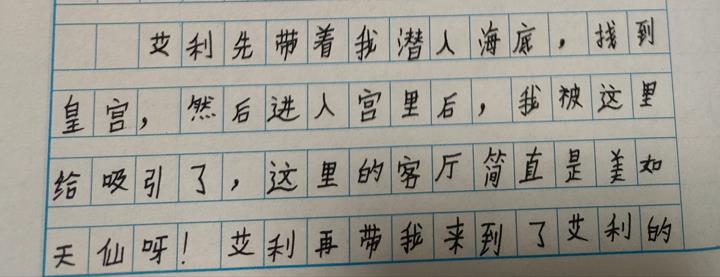 艾利先带着我潜入海底，找到
皇宫，然后进入宫里后，我被这里
给吸引了，这里的客厅简直是美如
天仙呀！艾利再带我来到了艾利的